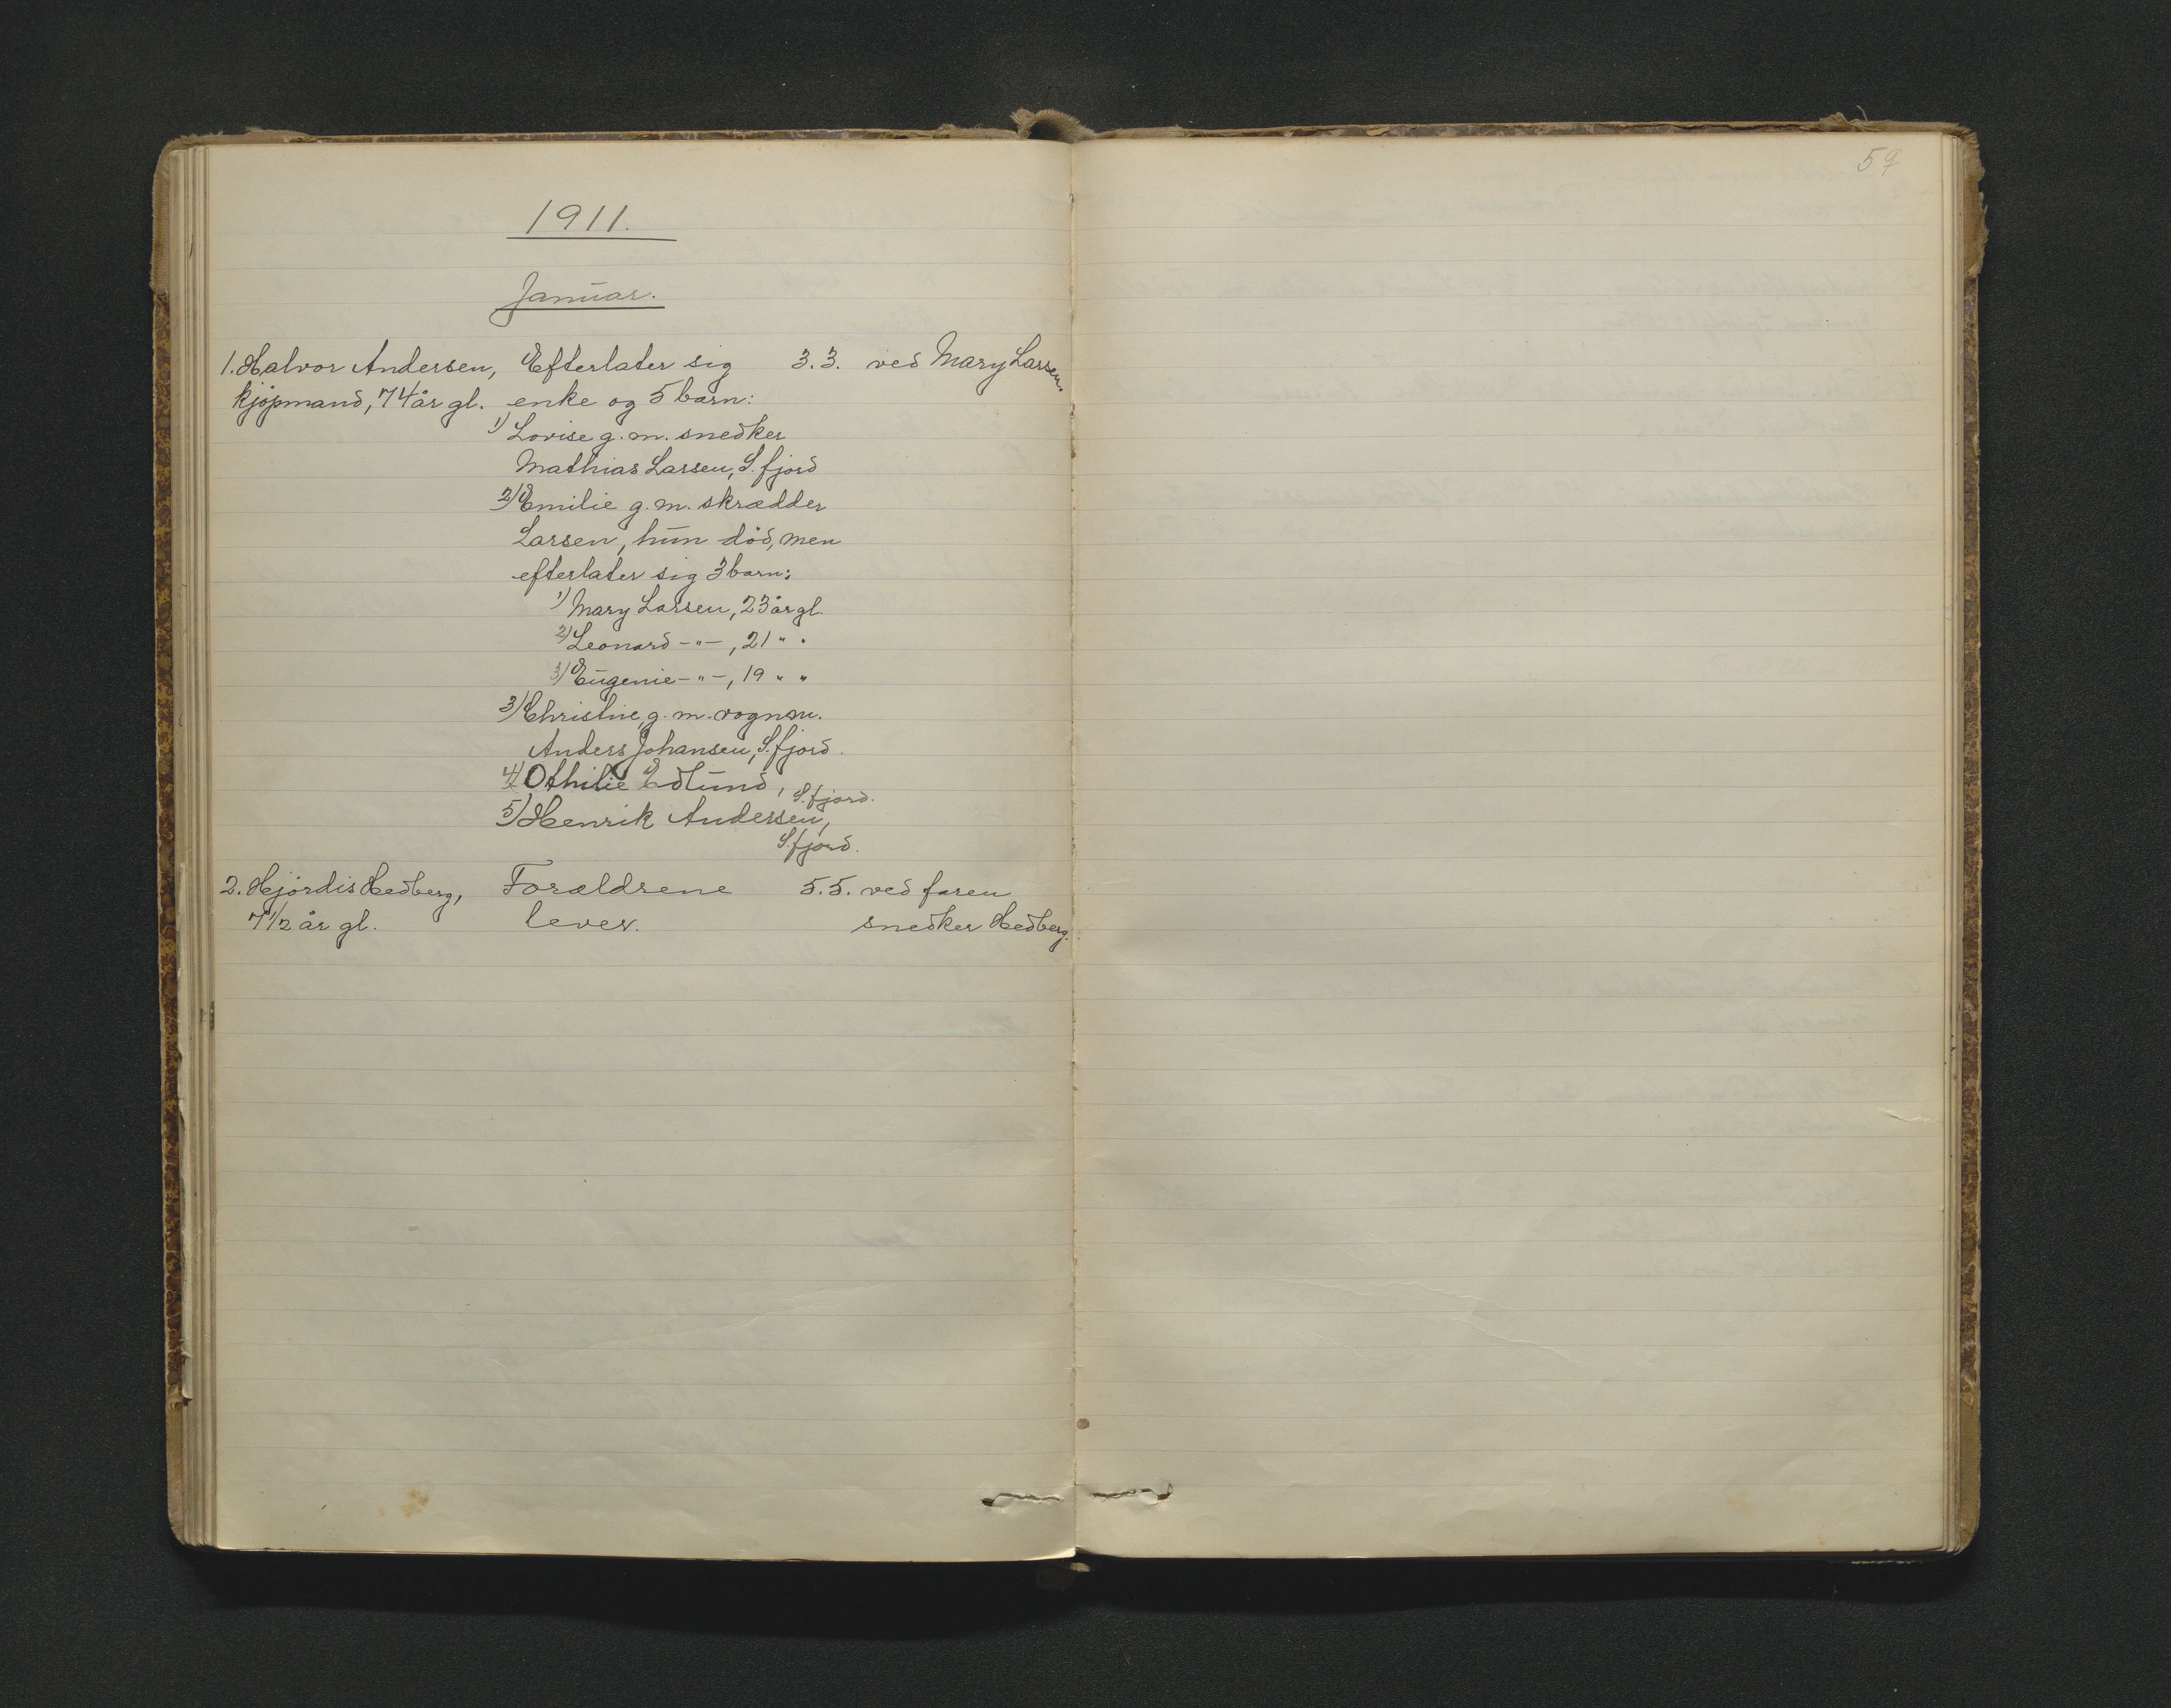 59
1911.
Januar.
1. Halvor Andersen, Efterlater sig 3.3. ved Mary Larsen.
kjøpmand, 74 år gl. enke og 5 barn:
1) Lovise g. m. snedker
Mathias Larsen, S.fjord
2) Emilie g. m. skrædder
Larsen, hun död, men
efterlater sig 3 barn:
1) Mary Larsen, 23 år gl.
2) Leonard -"-, 21 " "
3) Eugenie -"-, 19 " "
3) Christine, g. m. vognm.
Anders Johansen, S.fjord.
4) Othilie Edlund, S.fjord.
5) Henrik Andersen,
S.fjord.
2. Hjördis Hedberg, Forældrene 5.5. ved faren
7 1/2 år gl. lever. snedker Hedberg.